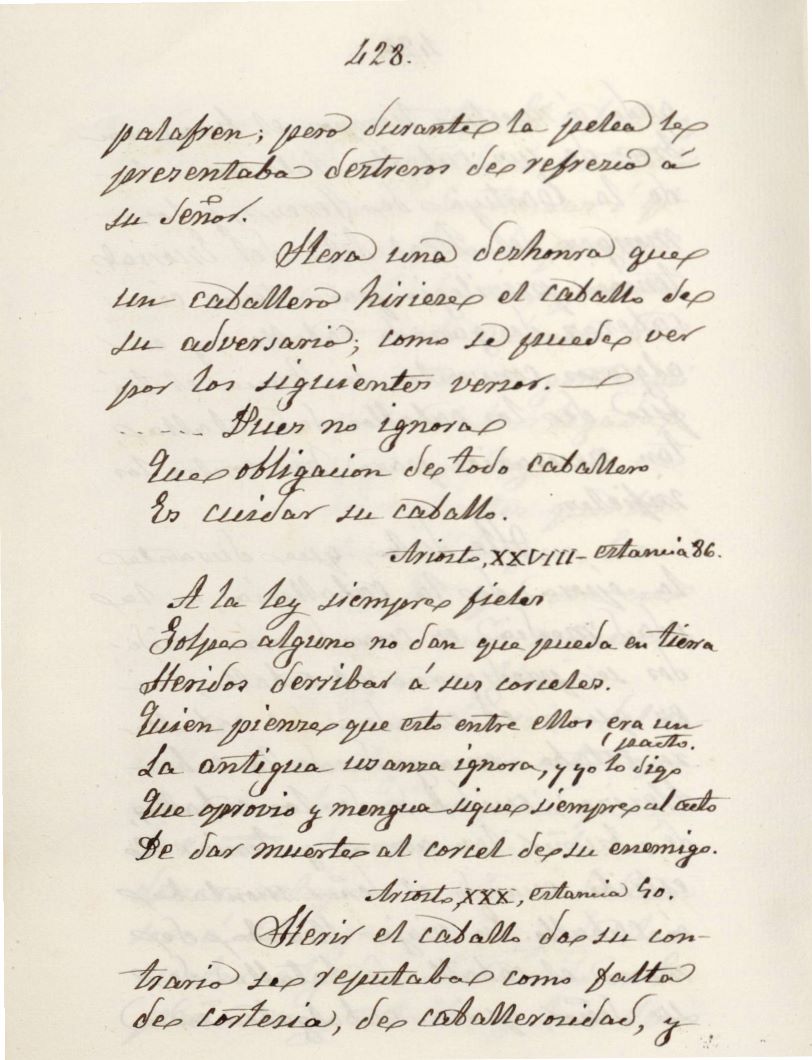 428.
palafren; pero durante la pelea le
presentaba destreros de refresco á
su señor.
Hera una deshonra que
un caballero hiriese el caballo de
su adversario; como se puede ver
por los siguientes versos. —
..... Pues no ignora
Que obligacion de todo caballero
Es cuidar su caballo.
Ariosto, XXVIII – estancia 86.
A la ley siempre fieles
Golpe alguno no dan que pueda en tierra
Heridos derribar á sus corceles.
Quien piense que esto entre ellos era un
(pacto.
La antigua usanza ignora, y yo lo digo
Que oprovio y mengua sigue siempre al acto
De dar muerte al corcel de su enemigo.
Ariosto, XXX, estancia 50.
Herir el caballo de su con-
trario se reputaba como falta
de cortesia, de caballerosidad, y